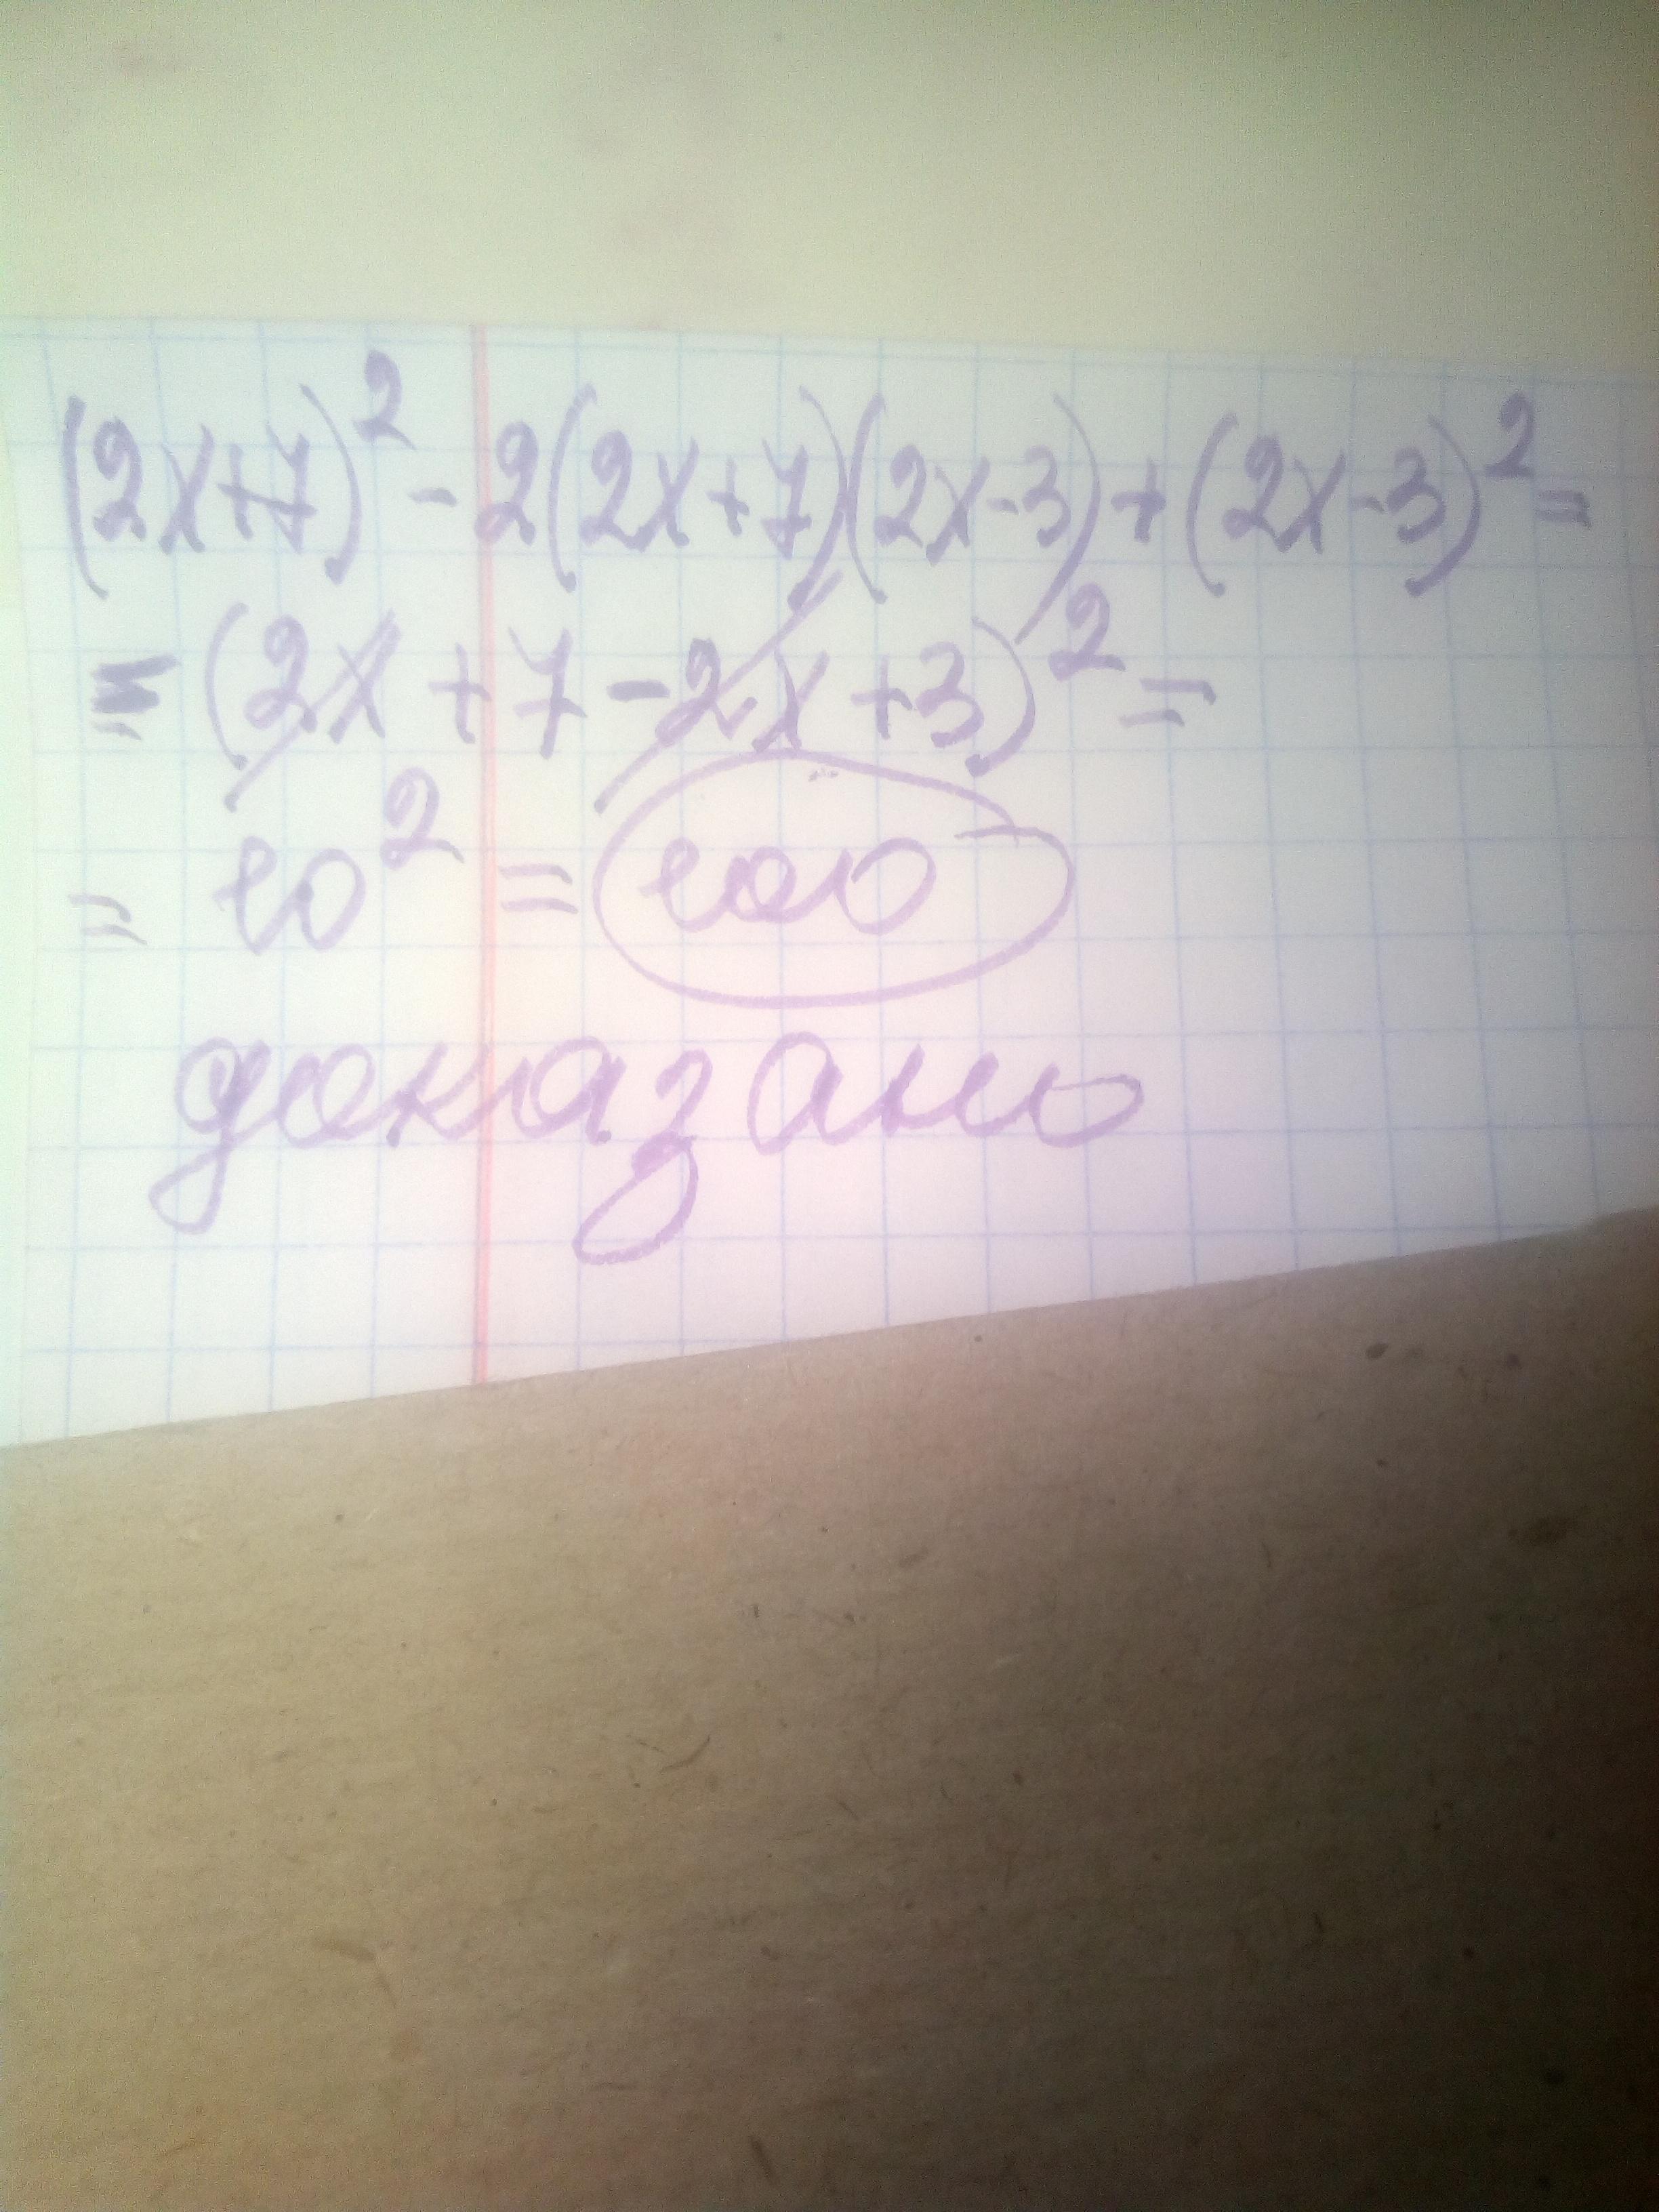 (2x+7)² - 2(2x+7)(2x-3) + (2x-3)² =
= (2x + 7 - 2x + 3)² =
= 10² = 100
доказано